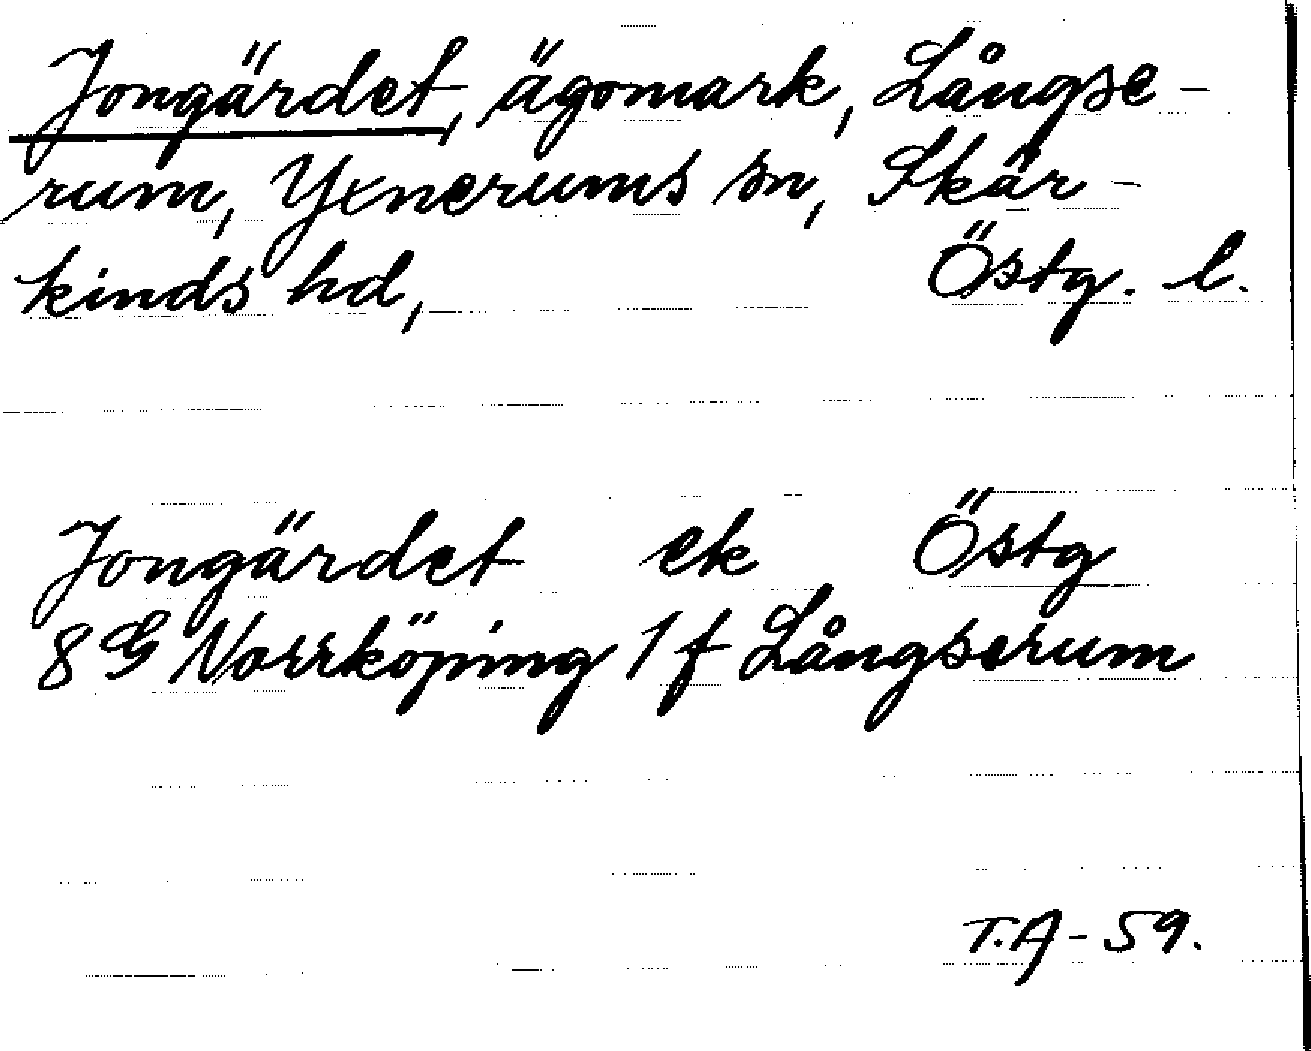 Jongärdet, ägomark, Långse-
rum, Yxnerums sn, Skär-
kinds hd, Östg. l.
Jongärdet ek Östg
8 G Norrköping 1 f Långserum
T.A-59.